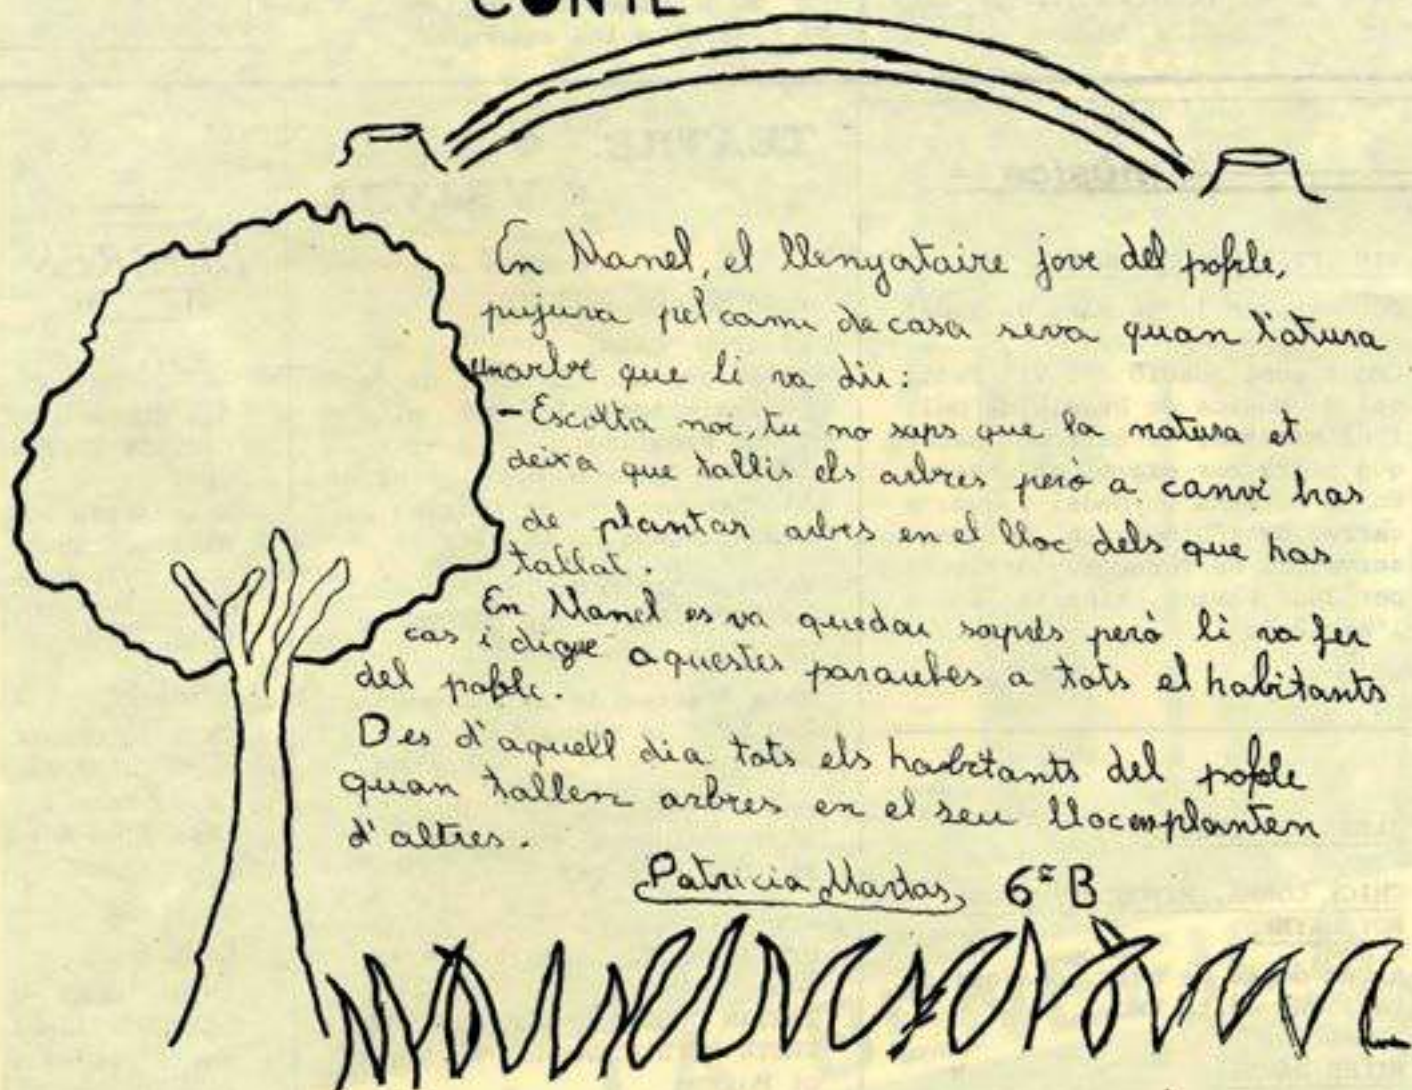 CONTE
En Manel, el llenyataire jove del poble,
pujava pel camí de casa seva quan l'atura
un arbre que li va dir:
- Escolta noi, tu no saps que la natura et
deixa que tallis els arbres però a canvi has
de plantar arbres en el lloc dels que has
tallat.
En Manel es va quedar soprés però li va fer
cas i digué aquestes paraules a tots el habitants
del poble.
Des d'aquell dia tots els habitants del poble
quan tallem arbres en el seu lloc en planten
d'altres.
Patricia 6è B